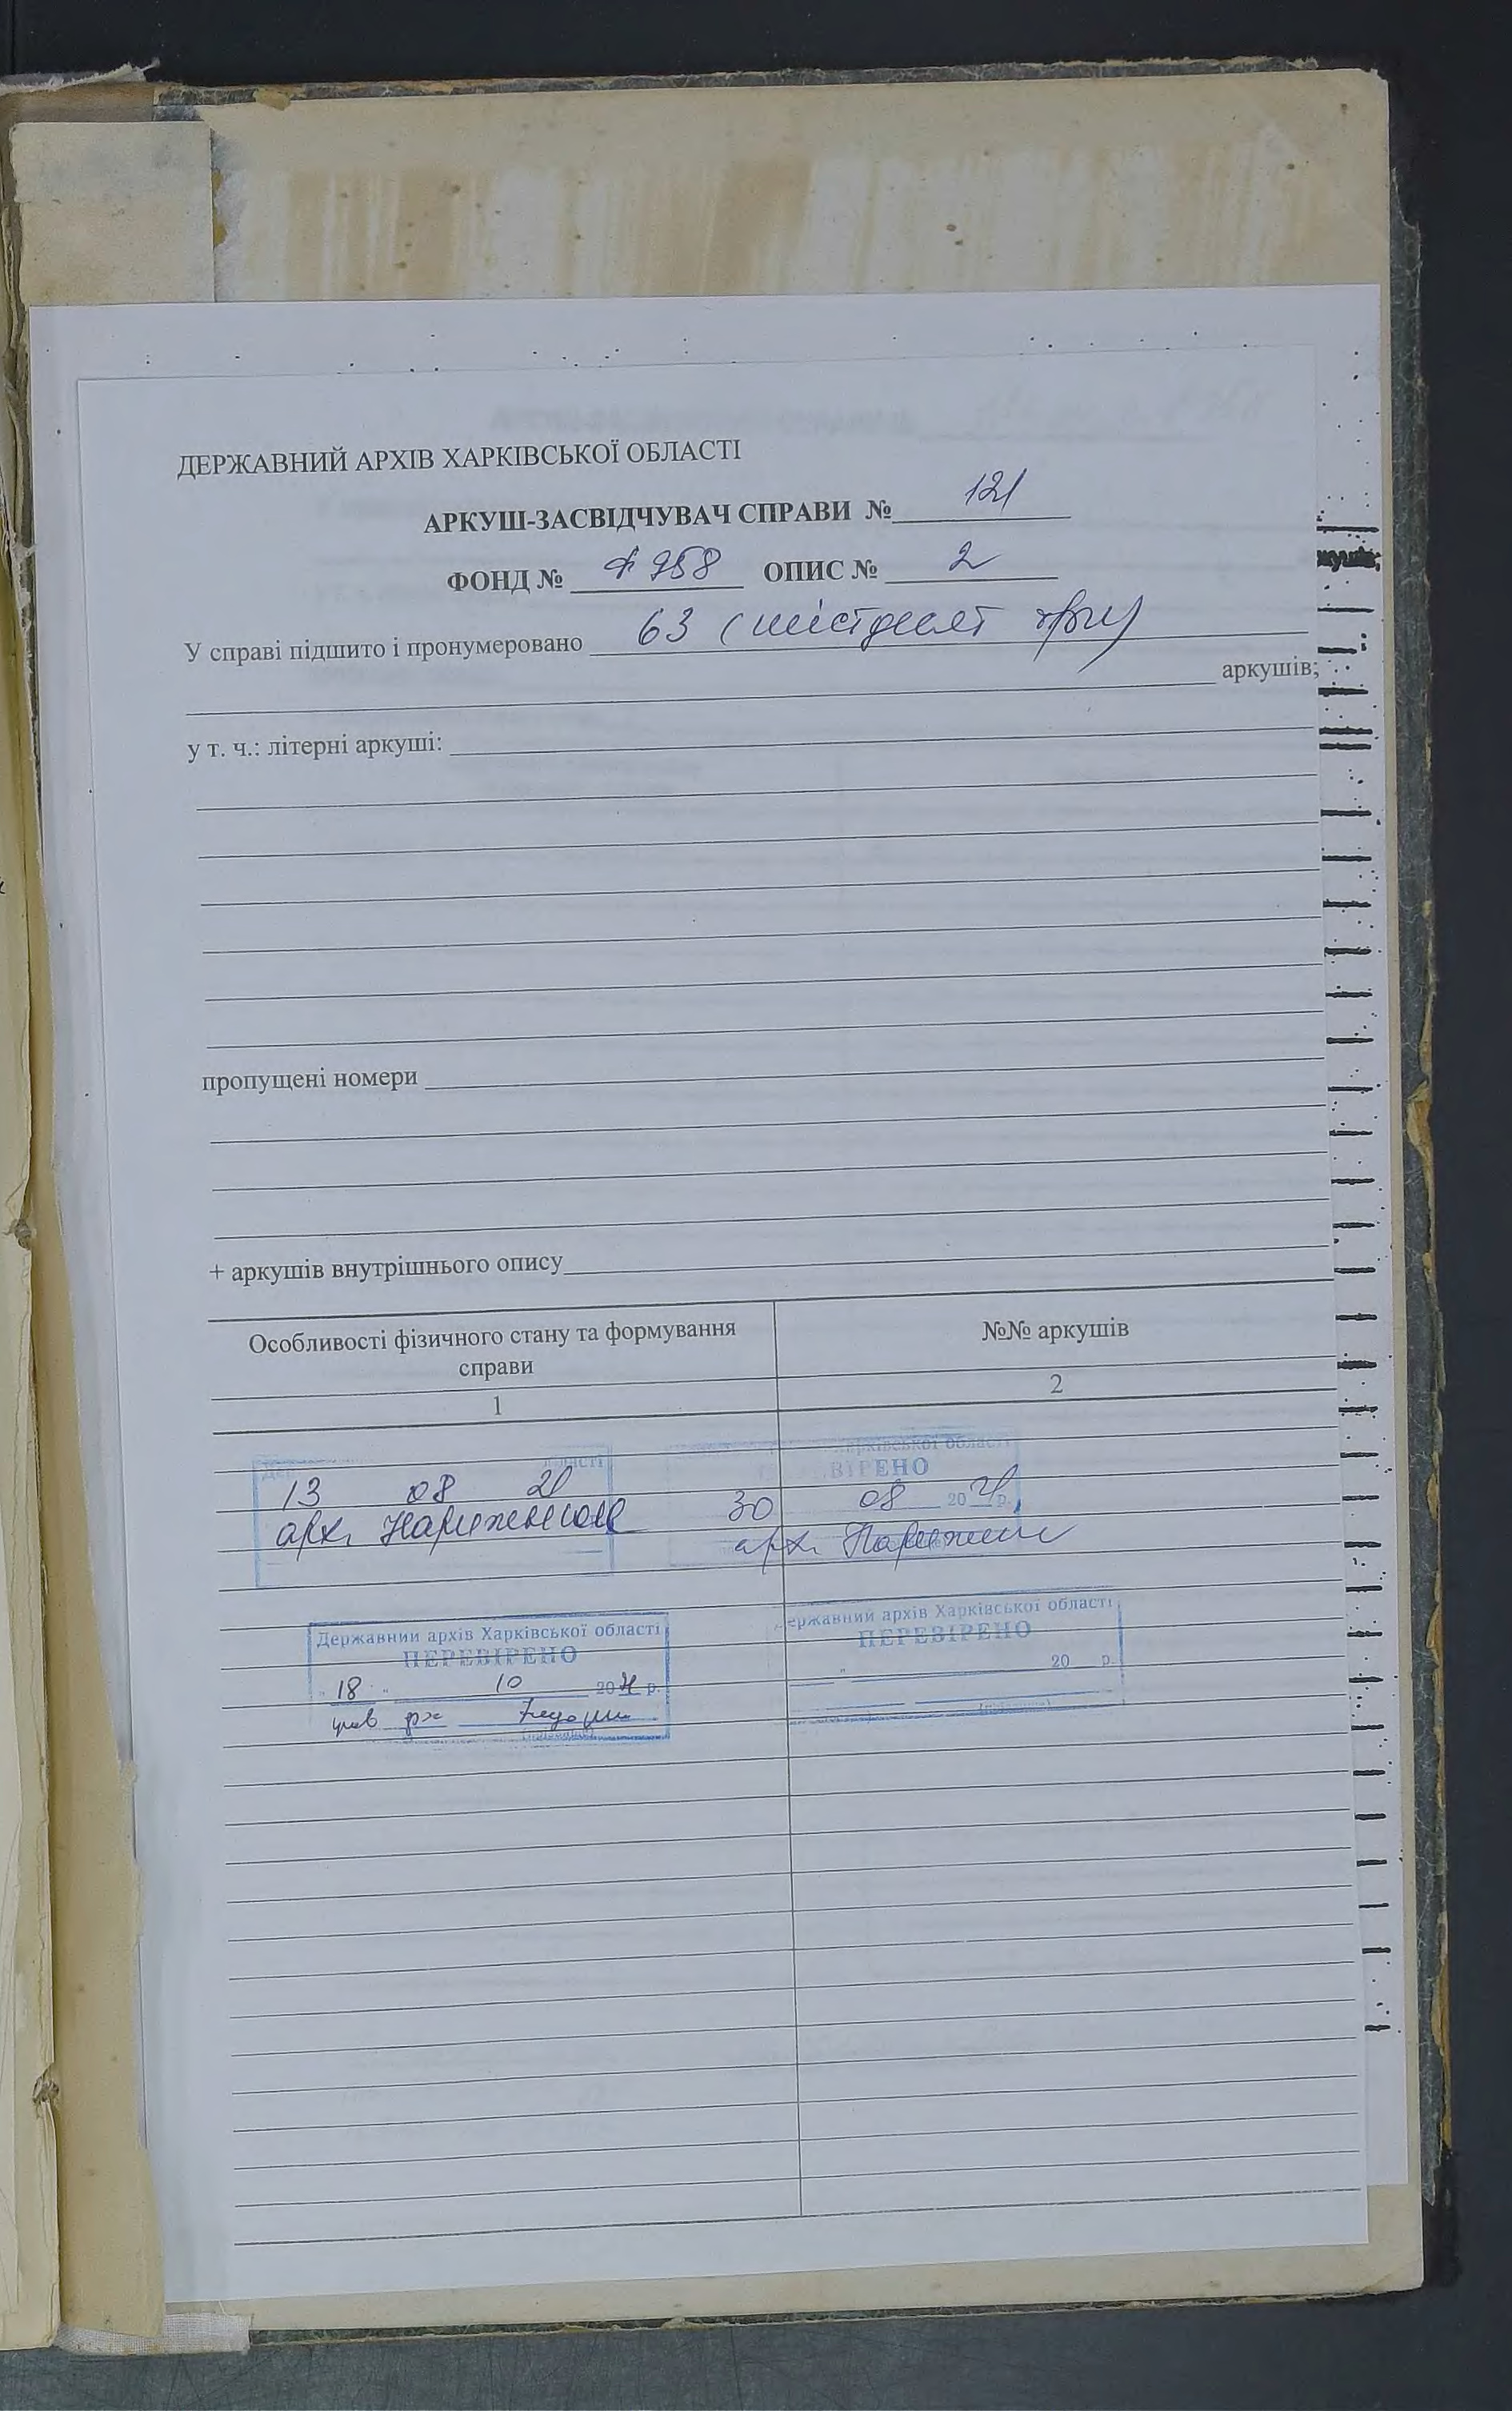 ДЕРЖАВНИЙ АРХІВ ХАРКІВСЬКОЇ ОБЛАСТІ
АРКУШ-ЗАСВІДЧУВАЧ СПРАВИ № 121
ФОНД № 958 ОПИС № 2
У справі підшито і пронумеровано 63 (шістдесят три)
аркушів;
у т. ч.: літерні аркуші:
пропущені номери
+ аркушів внутрішнього опису
Особливості фізичного стану та формування справи
№№ аркушів
1
2
області
13 08 21
арх.
Харківської області
ПЕРЕВІРЕНО
30 08 20 р.
арх.
Державний архів Харківської області
ПЕРЕВІРЕНО
" 18 " 10 20 р.
(підпис)
Державний архів Харківської області
ПЕРЕВІРЕНО
" 20 р.
(підпис)